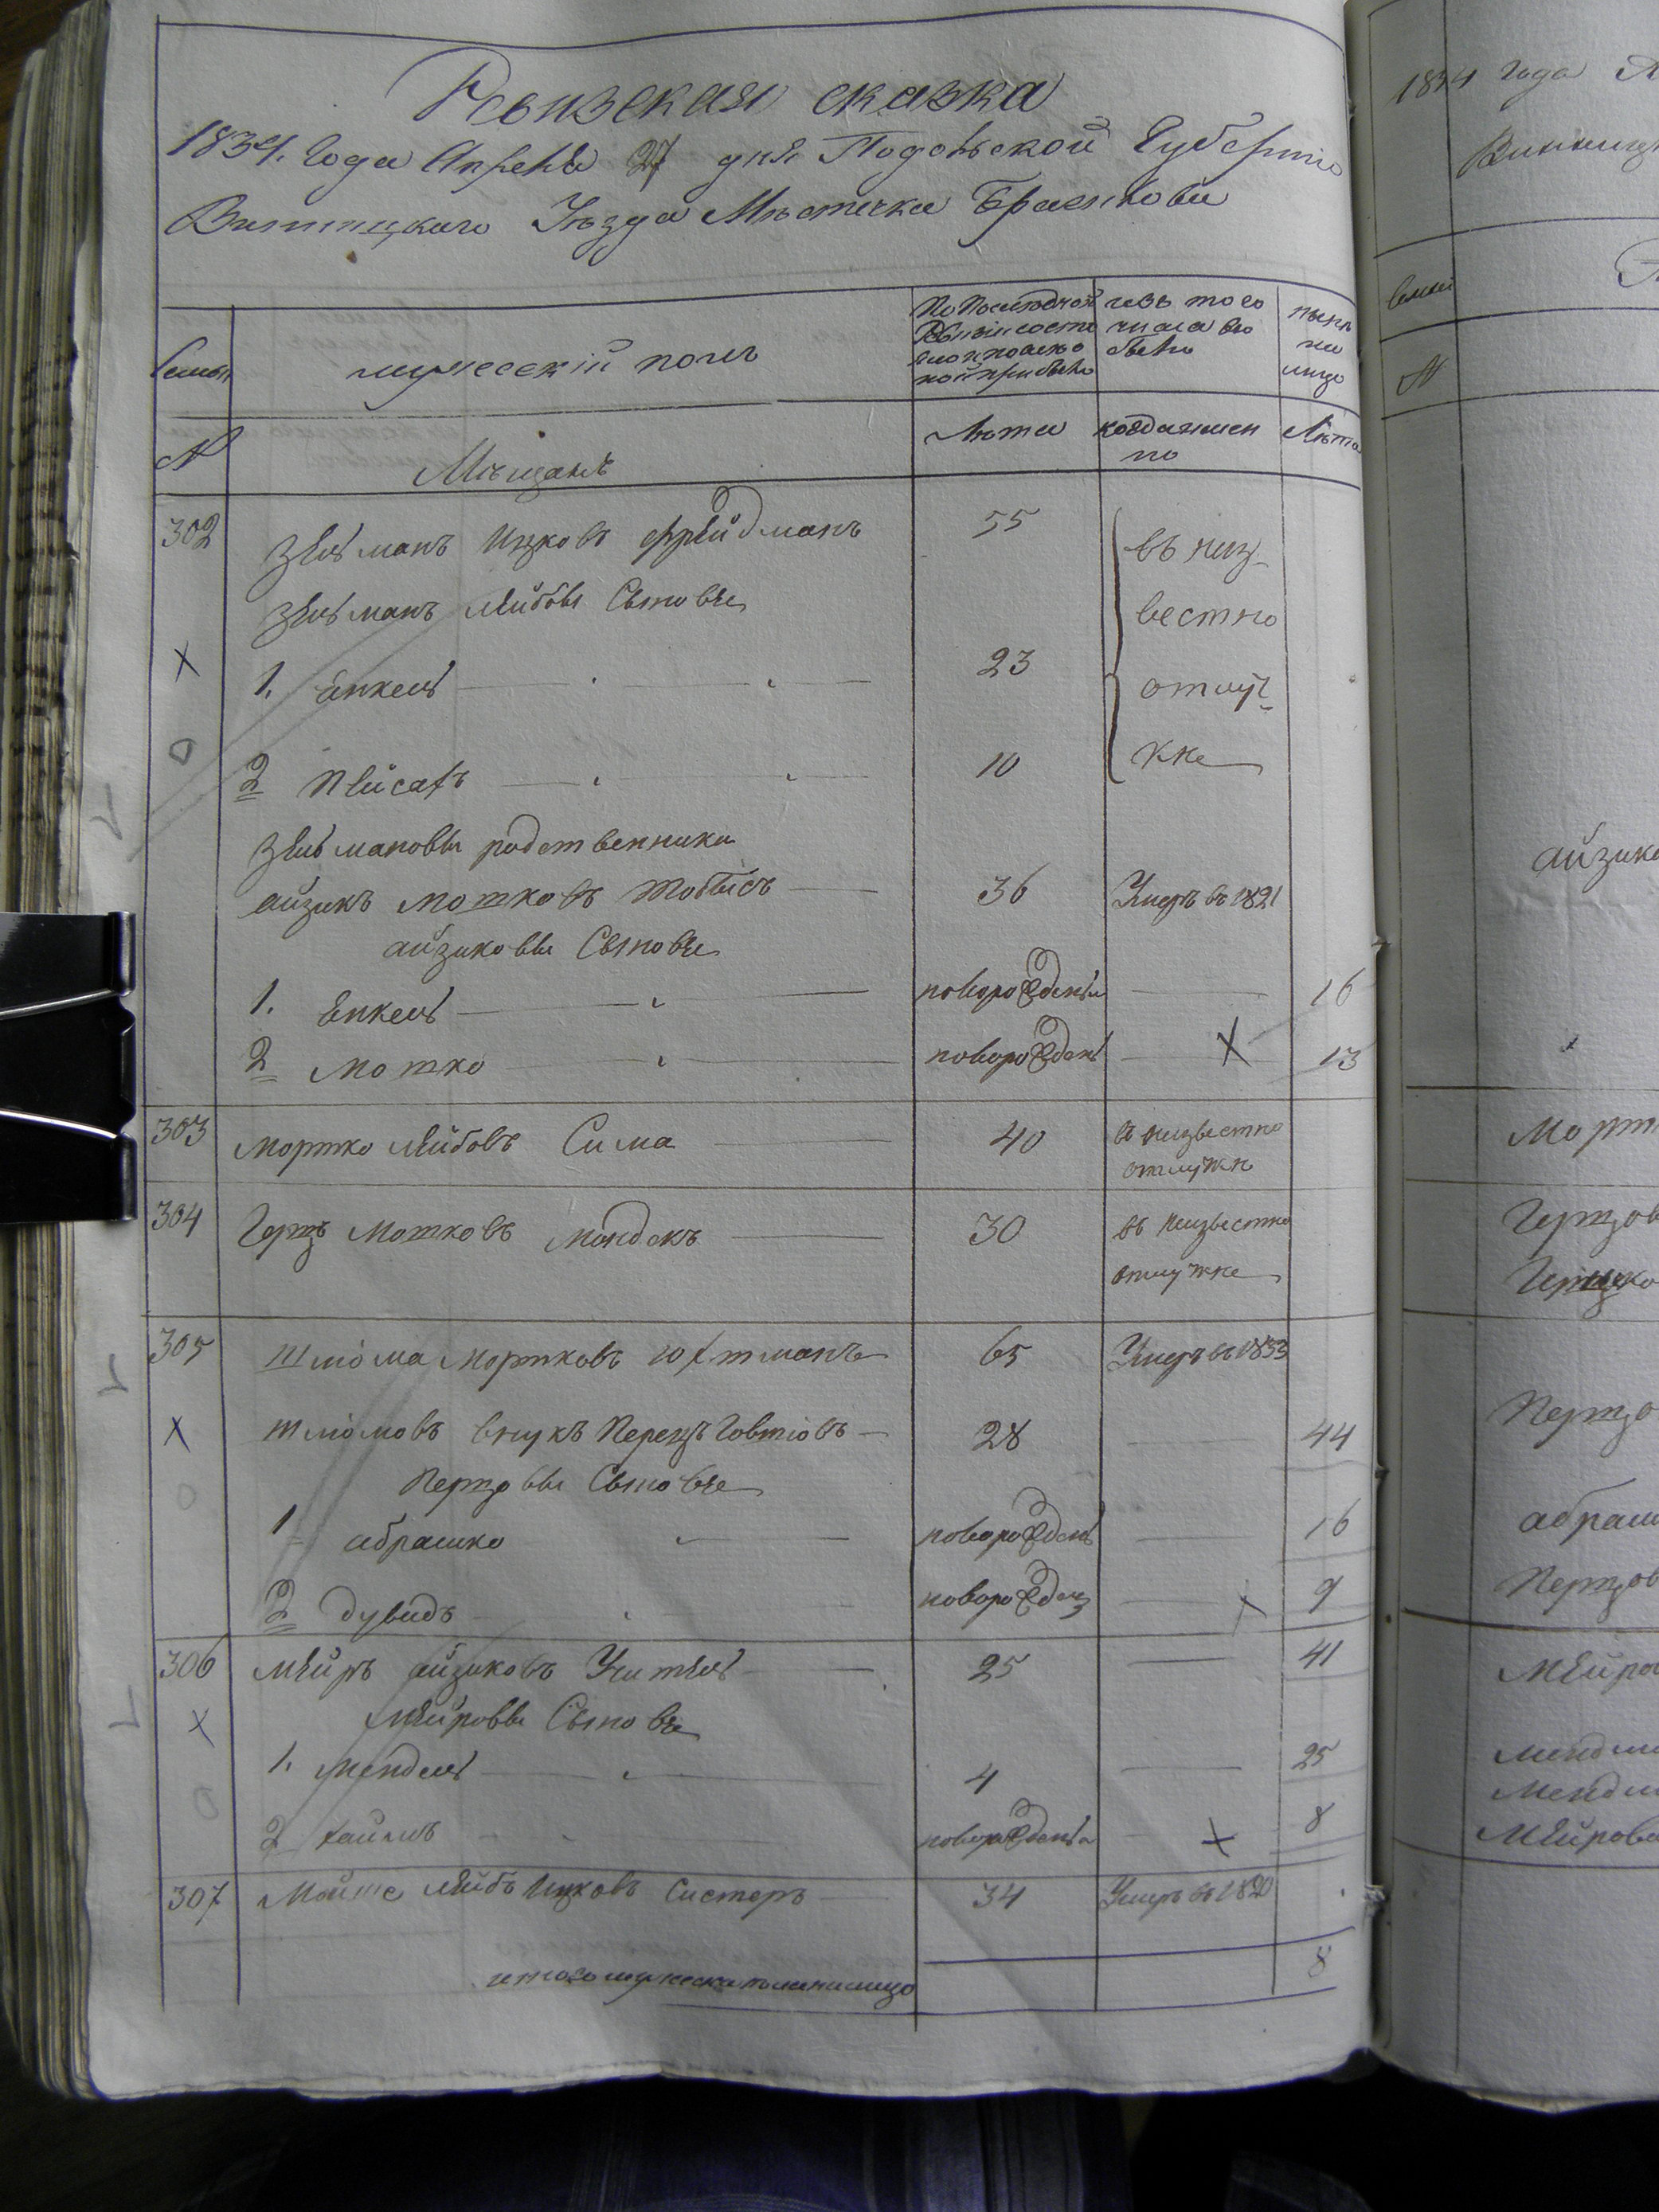 Ревизская сказка
1834. Года Апреля 27 дня Подольской Губернiи
Винницкаго Уезда Местечка Браилова
Семьи
мужескiй полъ
По последней Ревизiи состояло и после оной прибыло
изъ того числа выбыло
ныне на лицо
№
Мещане
Лета
когда именно
Лета
302 Зельманъ Ицковъ Фрейдманъ 55 въ неиз-
Зельманъ Лейбовы Сыновье вестно
1. Енкель 23 отлуч-
2 Пейсахъ 10 кке
Зельмановы родственники
айзикъ Мотковъ Тобысъ 36 Умеръ въ 1821
айзиковы Сыновье
1. Енкель новорожденъ 16
2 Мотко новорожденъ 13
303 Мортко Лейбовъ Сима 40 въ неизвестно отлучке
304 Герцъ Мотковъ Мондокъ 30 въ неизвестно отлучке
305 Шлiома Мортковъ Юхтманъ 65 Умеръ въ 1833
Шлiомовъ внукъ Перецъ Говшiовъ 28 44
Перцовы Сыновье
1 абрашко новорожденъ 16
2 дувидъ новорожден 9
306 Мейръ айзиковъ Учитель 25 41
Мейровы Сыновье
1. Мендель 4 25
2 хаимъ новорожденъ 8
307 Мойше Лейбъ Ицковъ Систеръ 34 Умеръ въ 1820
итого мужеска пола налицо 8
1834 Года
Винниц
Семьи
№
айзико
Морт
Герцов
Перцо
абраш
Перцов
Мейро
Мендел
Мендел
Мейрова